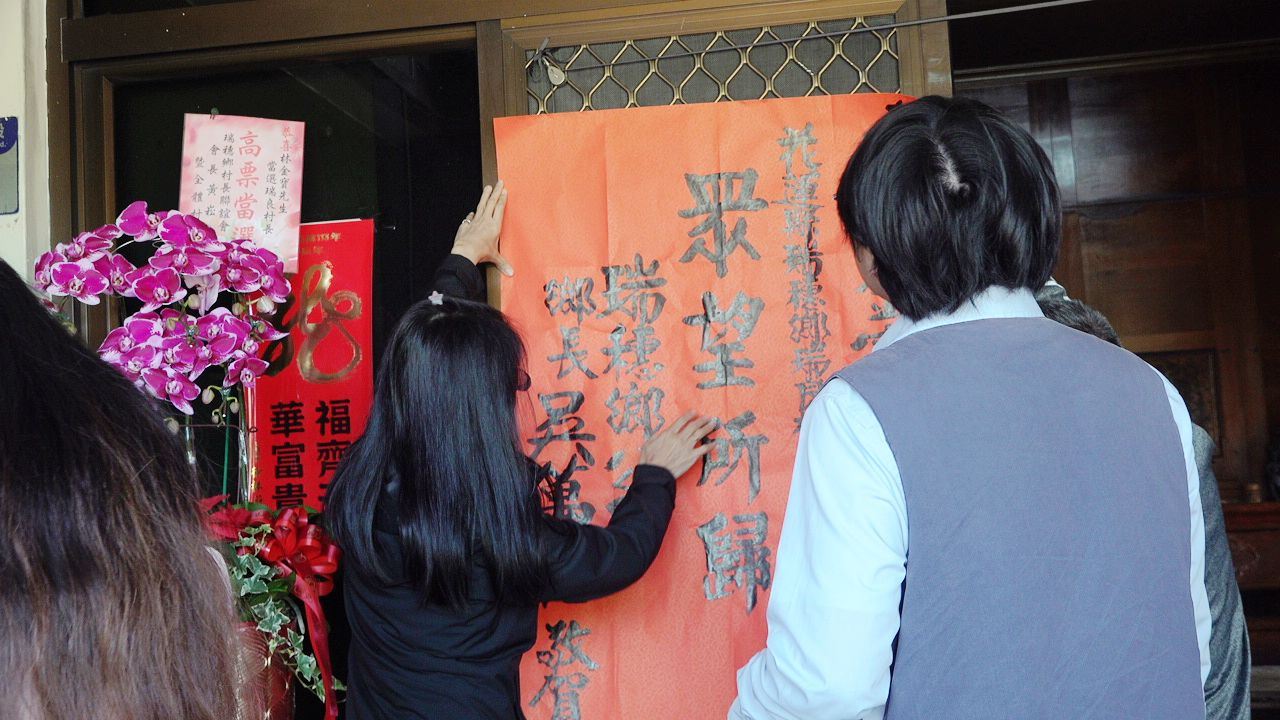 恭喜
林金寶先生
當選瑞良村長
高票當選
瑞穗鄉村長聯誼會
會長黃崧
暨全體村
福齊
華富貴
花蓮縣瑞穗鄉瑞良
眾望所歸
瑞穗鄉公
鄉長吳萬
敬賀